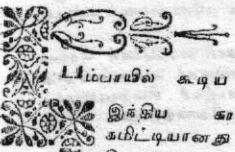 பம்பாயில் கூடிய
இந்திய கா
கமிட்டியானது